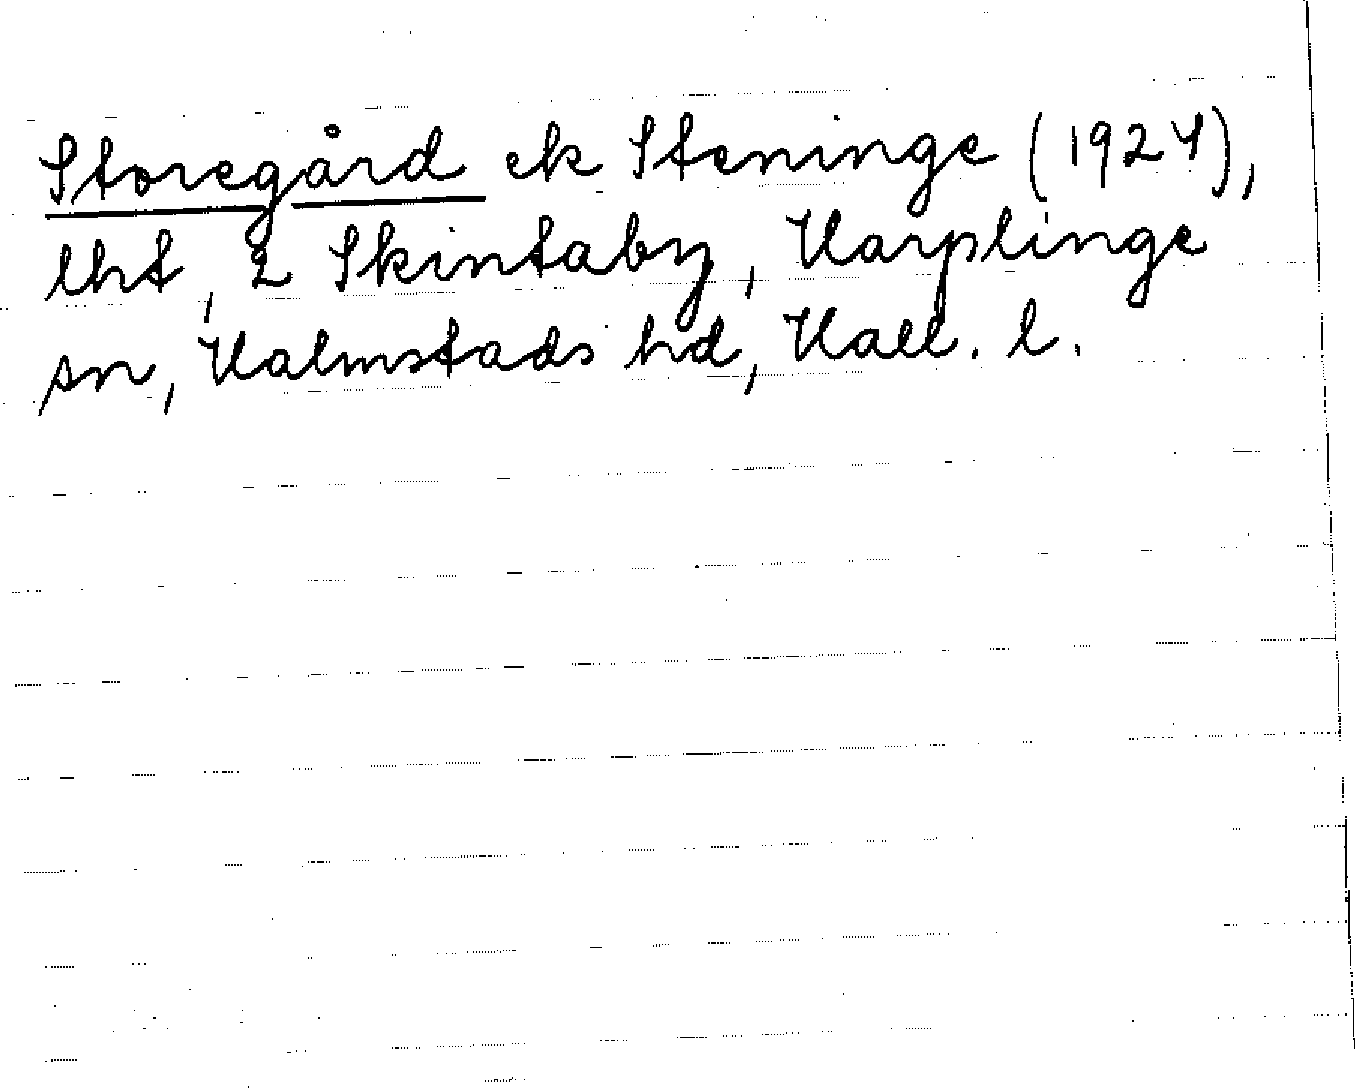 Storegård ek Steninge (1924),
lht, 2 Skintaby, Harplinge
sn, Halmstads hd, Hall. l.